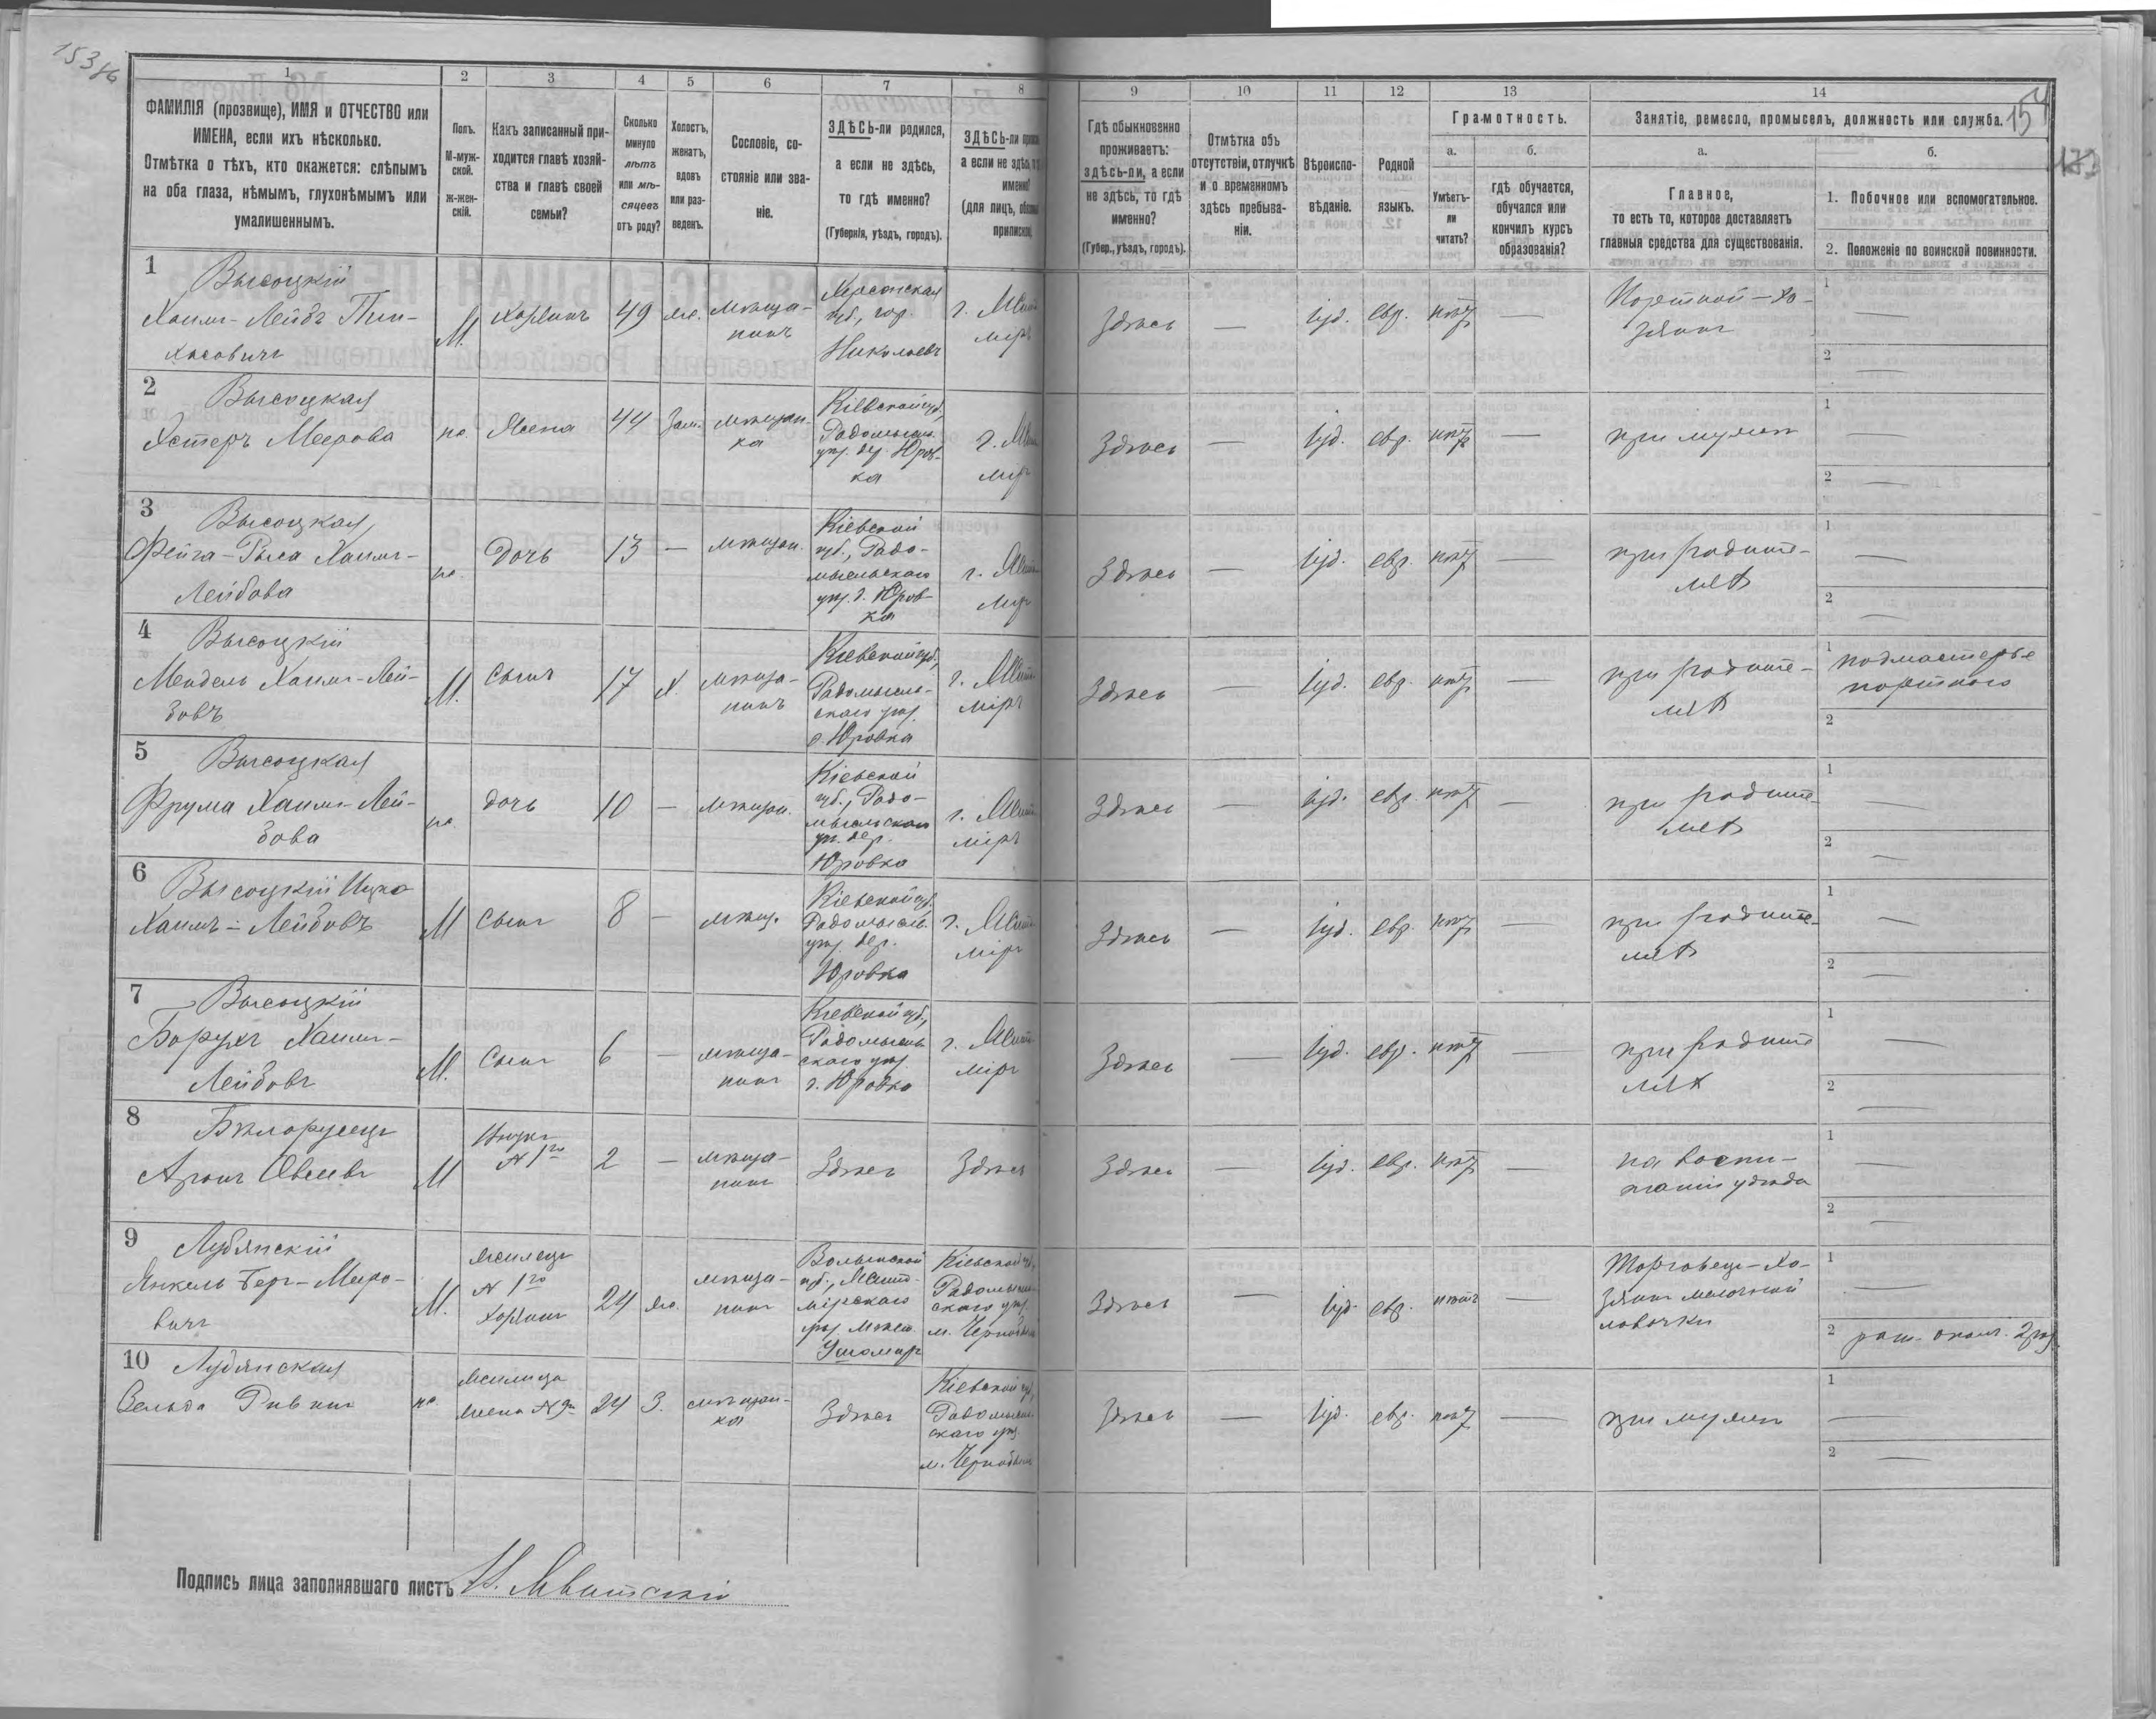 153об
154
1
2
3
4
5
6
7
8
9
10
11
12
13
14
ФАМИЛІЯ (прозвище), ИМЯ и ОТЧЕСТВО или
ИМЕНА, если ихъ нѣсколько.
Отмѣтка о тѣхъ, кто окажется: слѣпымъ
на оба глаза, нѣмымъ, глухонѣмымъ или
умалишеннымъ.
Полъ.
М-муж-
ской.
ж-жен-
скій.
Какъ записанный при-
ходится главѣ хозяй-
ства и главѣ своей
семьи?
Сколько
минуло
лѣтъ
или мѣ-
сяцевъ
отъ роду?
Холостъ,
женатъ,
вдовъ
или раз-
веденъ.
Сословіе, со-
стояніе или зва-
ніе.
ЗДѢСЬ-ли родился,
а если не здѣсь,
то гдѣ именно?
(Губернія, уѣздъ, городъ).
ЗДѢСЬ-ли
а если не здѣсь,
именно?
(для лицъ,
Гдѣ обыкновенно
проживаетъ:
здѣсь-ли, а если
не здѣсь, то гдѣ
именно?
(Губер., уѣздъ, городъ).
Отмѣтка объ
отсутствіи, отлучкѣ
и о временномъ
здѣсь пребыва-
ніи.
Вѣроиспо-
вѣданіе.
Родной
языкъ.
Грамотность.
а.
Умѣетъ-
ли
читать?
б.
гдѣ обучается,
обучался или
кончилъ курсъ
образованія?
Занятіе, ремесло, промыселъ, должность или служба.
а.
Главное,
то есть то, которое доставляетъ
главныя средства для существованія.
б.
1. Побочное или вспомогательное.
2. Положеніе по воинской повинности.
1
Высоцкій
Хаимъ-Лейбъ Пин-
хасовичъ
М.
хозяинъ
49
же.
мѣща-
нинъ
Херсонская
губ., гор.
Николаевъ
г. Жит
міръ
Здѣсь
—
іуд.
евр.
нѣтъ
—
Портной – хо-
зяинъ
1
—
2
—
2
Высоцкая
Хстеръ Меерова
же.
Жена
44
Зам.
мѣщан-
ка
Кіевской губ.,
Радомысл.
уѣз. дер. Юров-
ка
г. Жит
міръ
Здѣсь
—
іуд.
евр.
нѣтъ
—
при мужѣ
1
—
2
—
3
Высоцкая
Фейга-Рыса Хаимъ-
Лейбова
же.
Дочь
13
—
мѣщан.
Кіевской
губ., Радо-
мысльскаго
уѣз. д. Юров-
ка
г. Жит
міръ
Здѣсь
—
іуд.
евр.
нѣтъ
—
при родите-
ляхъ
1
—
2
—
4
Высоцкій
Мендель Хаимъ-Лей-
бовъ
М.
Сынъ
17
Х.
мѣща-
нинъ
Кіевской губ.,
Радомысль-
скаго уѣз.
д. Юровка
г. Жит
міръ
Здѣсь
—
іуд.
евр.
нѣтъ
—
при родите-
ляхъ
1
подмастерье
портного
2
5
Высоцкая
Фрума Хаимъ-Лей-
бова
же.
дочь
10
—
мѣщан.
Кіевской
губ., Радо-
мысльскаго
уѣз. дер.
Юровка
г. Жит
міръ
Здѣсь
—
іуд.
евр.
нѣтъ
—
при родите-
ляхъ
1
—
2
—
6
Высоцкій Ицко
Хаимъ-Лейбовъ
М
Сынъ
8
—
мѣщ.
Кіевской губ.
Радомысль.
уѣз. дер.
Юровка
г. Жит
міръ
Здѣсь
—
іуд.
евр.
нѣтъ
—
при родите-
ляхъ
1
—
2
—
7
Высоцкій
Борухъ Хаимъ-
Лейбовъ
М.
Сынъ
6
—
мѣща-
нинъ
Кіевской губ.,
Радомысль
скаго уѣз.
д. Юровка
г. Жит
міръ
Здѣсь
—
іуд.
евр.
нѣтъ
—
при родите
ляхъ
1
—
2
—
8
Бѣлорусецъ
Аронъ Овсеевъ
М
Внукъ
№ 1го
2
—
мѣща-
нинъ
Здѣсь
Здѣсь
Здѣсь
—
іуд.
евр.
нѣтъ
—
на воспи-
таніи у дѣда
1
—
2
—
9
Лубянскій
Янкель Бер-Меро-
вичъ
М.
жилецъ
№ 1го
хозяинъ
24
же.
мѣща-
нинъ
Волынской
губ., Жито-
мірскаго
уѣз. мѣст.
Ушомиръ
Кіевской губ.,
Радомысль
скаго уѣз.
м. Чернобыль
Здѣсь
—
іуд.
евр.
нѣтъ
—
Торговецъ – Хо-
зяинъ мелочной
лавочки
1
—
2
рат. ополч. 2 раз.
10
Лубянская
Ривина
же.
жилица
жена № 9го
24
З.
мѣщан-
ка
Здѣсь
Кіевской губ.,
Радомысль
скаго уѣз.
м. Чернобыль
Здѣсь
—
іуд.
евр.
нѣтъ
—
при мужѣ
1
—
2
—
Подпись лица заполнявшаго листъ